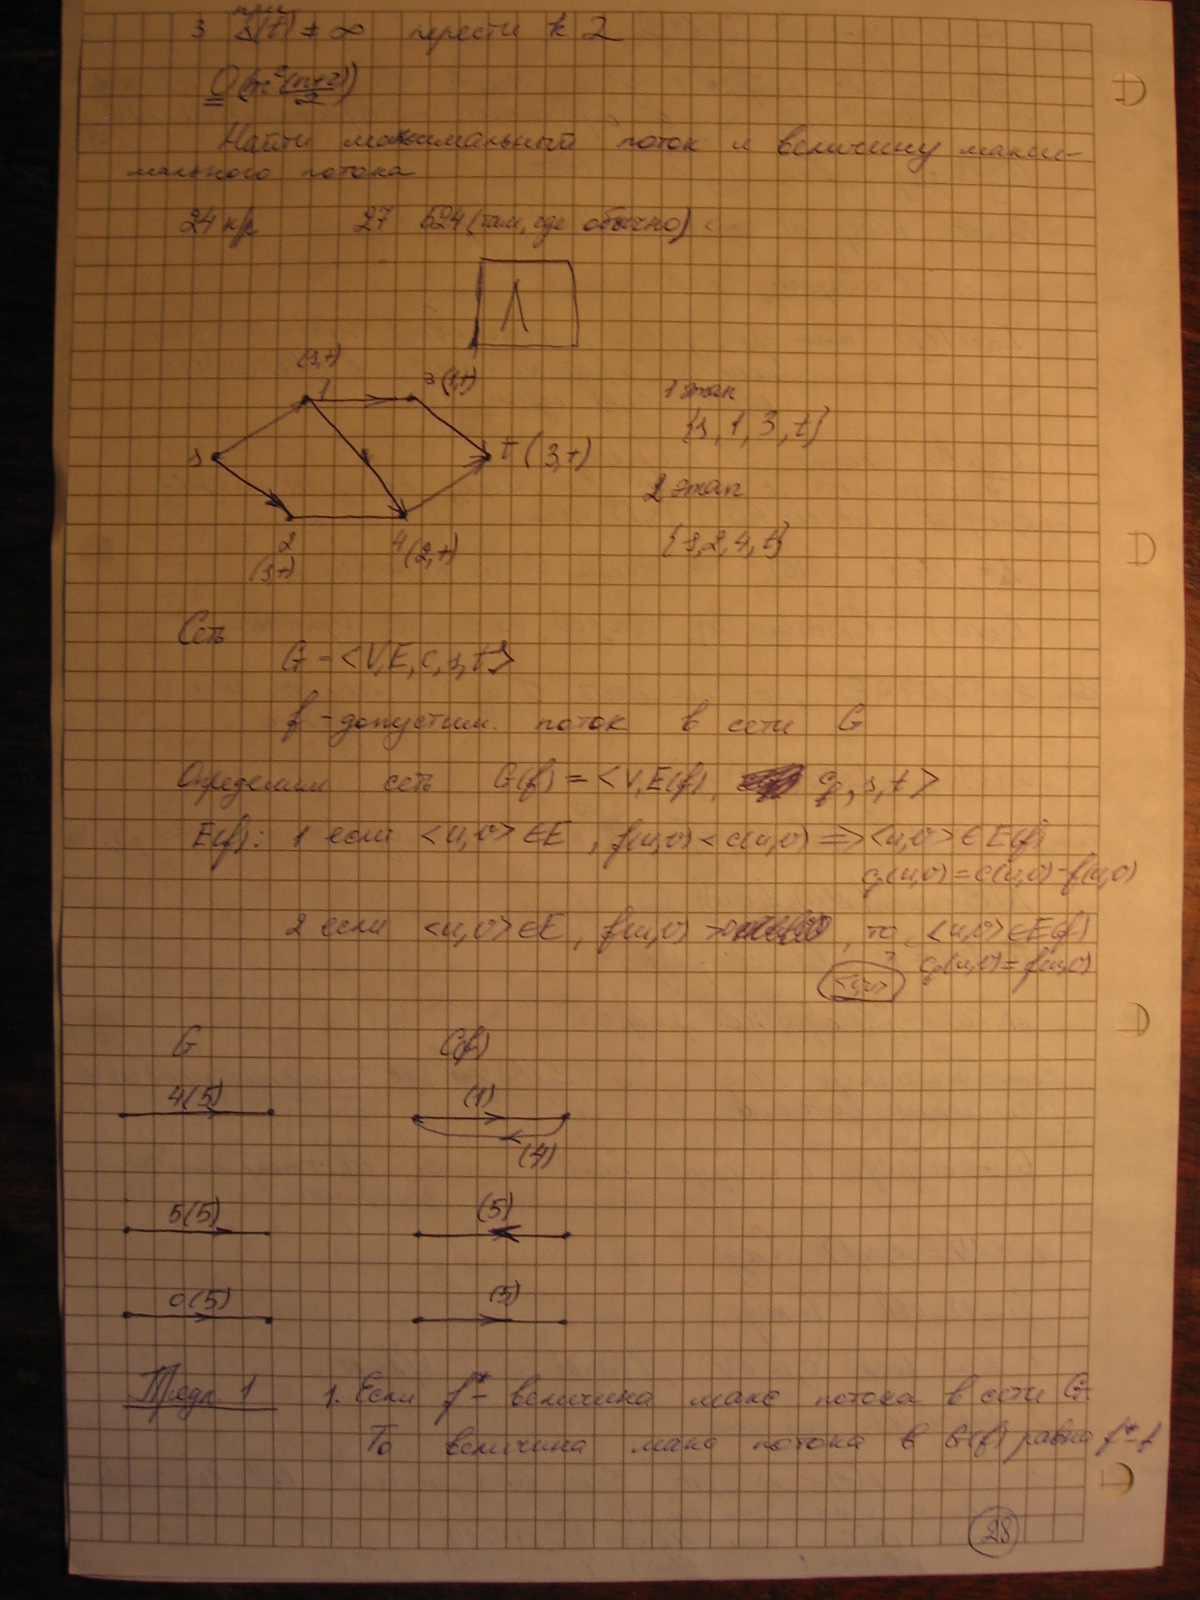 при
3 Δ(t) ≠ ∞ перести к 2
Найти максимальный поток и величину макси-
мального потока
24 к/р 27 524 (там, где обычно)
Λ
(s,+)
1
3 (1,+)
s
t (3,+)
2
(s,+)
4 (2,+)
1 этап
{s, 1, 3, t}
2 этап
{s, 2, 4, t}
Сеть
G = <V, E, c, s, t>
f - допустим. поток в сети G
Определим сеть G(f) = <V, E(f), c_f, s, t>
E(f): 1 если <u,v> ∈ E, f(u,v) < c(u,v) => <u,v> ∈ E(f)
c_f(u,v) = c(u,v) - f(u,v)
2 если <u,v> ∈ E, f(u,v) >0, то <u,v> ∈ E(f)
? c_f(u,v) = f(u,v)
<v,u>
G G(f)
4(5) (1)
(4)
5(5) (5)
0(5) (5)
Предл 1 1. Если f* - величина макс потока в сети G
То величина макс потока в G(f) равна f* - f
28